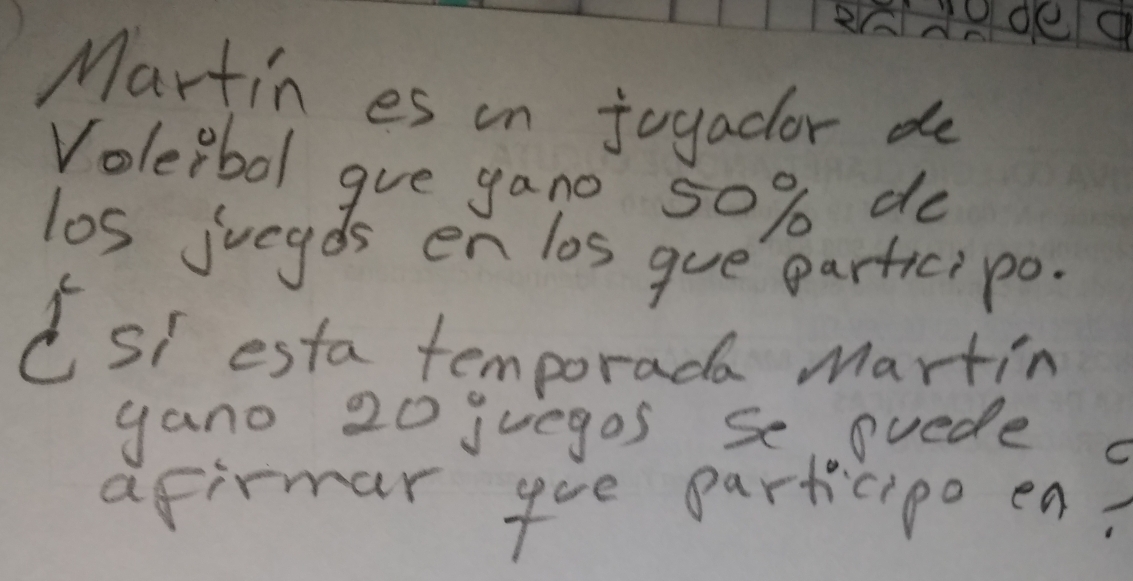 de
Martín es un jugador de
Voleibol que gano 50% de
los juegos en los que participo.
¿ si esta temporada Martín
gano 20 juegos se puede
afirmar que participo en ?